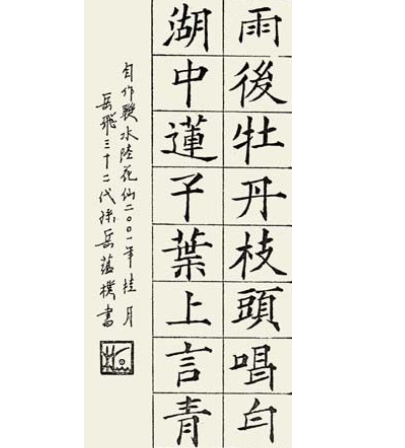 雨後牡丹枝頭唱白
湖中蓮子葉上言青
自作聯水陸花仙二〇〇一年桂月
岳飛三十二代孫岳樸書